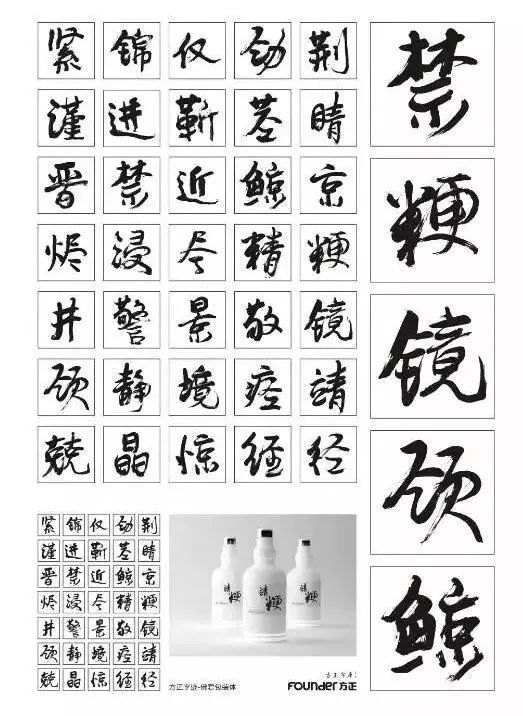 紧 锦 仅 劲 荆
谨 进 靳 茎 睛
晋 禁 近 鲸 京
烬 浸 尽 精 粳
井 警 景 敬 镜
颈 静 境 痉 靖
兢 晶 惊 经 径
禁
粳
镜
颈
鲸
紧 锦 仅 劲 荆
谨 进 靳 茎 睛
晋 禁 近 鲸 京
烬 浸 尽 精 粳
井 警 景 敬 镜
颈 静 境 痉 靖
兢 晶 惊 经 径
粳
方正字迹-佛君包装体
方正字库
FOUNDER 方正